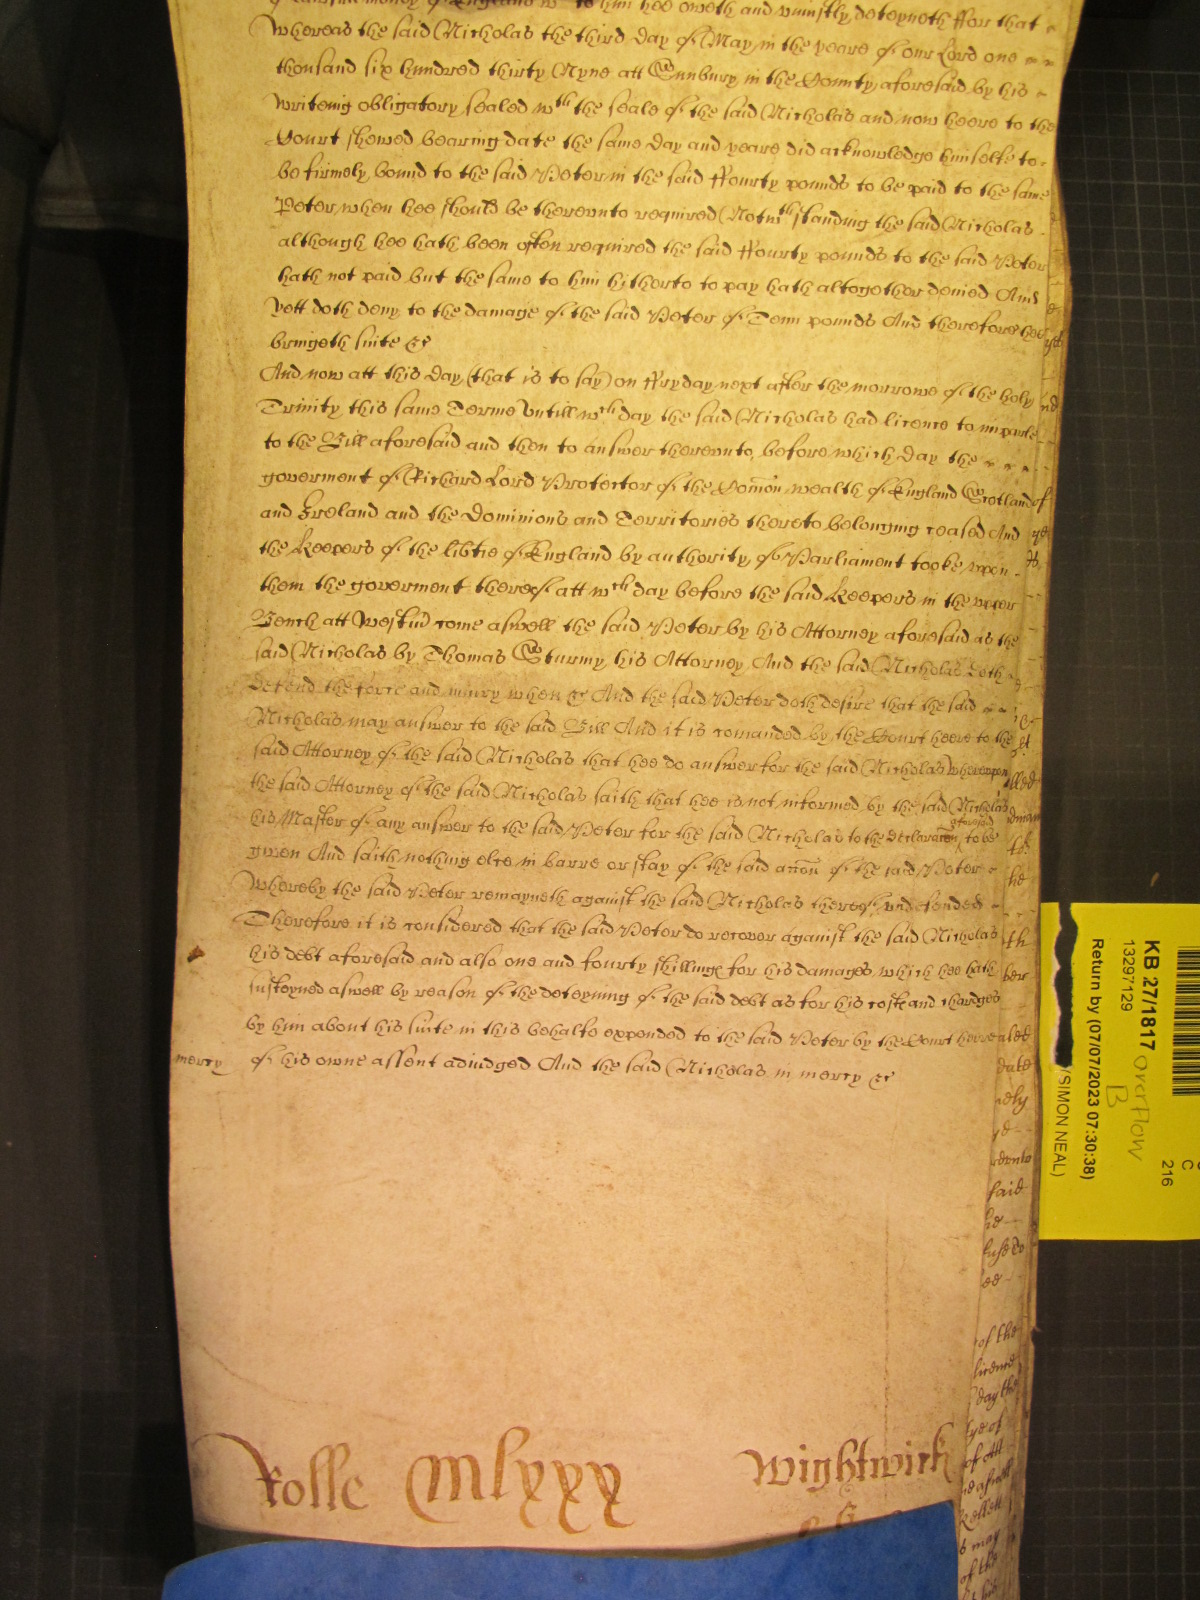 of lawfull money of England wch to him hee oweth and vniustly deteyneth ffor that
Whereas the said Nicholas the third day of May in the yeare of our Lord one
thousand six hundred thirty Nyne att Sunbury in the County aforesaid by his
writeing obligatory sealed wth the seale of the said Nicholas and now heere to the
Court shewed bearing date the same day and yeare did acknowledge himselfe to
be firmely bound to the said Peter in the said ffourty pounds to be paid to the same
Peter when hee should be therevnto required Notwthstanding the said Nicholas
although hee hath been often required the said ffourty pounds to the said Peter
hath not paid but the same to him hitherto to pay hath altogether denied And
yett doth deny to the damage of the said Peter of Tenn pounds And therefore hee
bringeth suite &c
And now att this day (that is to say) on ffryday next after the morrowe of the holy
Trinity this same Terme Vntill wch day the said Nicholas had licence to imparle
to the Bill aforesaid and then to answer therevnto, before which day the
goverment of Richard Lord Protector of the Comon wealth of England Scotland
and Ireland and the Dominions and Territories thereto belonging ceased And
the Keepers of the libtie of England by authority of Parliament tooke vpon
them the goverment thereof att wch day before the said Keepers in the vpper
Bench att Westm come aswell the said Peter by his Attorney aforesaid as the
said Nicholas by Thomas Sturmy his Attorney And the said Nicholas doth
defend the force and iniury when &c And the said Peter doth desire that the said
Nicholas may answer to the said Bill And it is comanded by the Court heere to the
said Attorney of the said Nicholas that hee do answer for the said Nicholas wherevpon
the said Attorney of the said Nicholas saith that hee is not informed by the said Nicholas
his Master of any answer to the said Peter for the said Nicholas to the declaracon aforesaid to be
given And saith nothing else in barre or stay of the said accon of the said Peter
Whereby the said Peter remayneth against the said Nicholas thereof vndefended
Therefore it is considered that the said Peter do recover against the said Nicholas
his debt aforesaid and also one and fourty shillings for his damages which hee hath
susteyned aswell by reason of the deteyning of the said debt as for his coste and chardges
by him about his suite in this behalfe expended to the said Peter by the Court heere
mercy of his owne assent adiudged And the said Nicholas in mercy &c
Rolle Mlxxx Wightwick
of the
licence
day the
said
KB 27/1817 overflow
B
13297129
Return by (07/07/2023 07:30:38)
(SIMON NEAL)
C
216